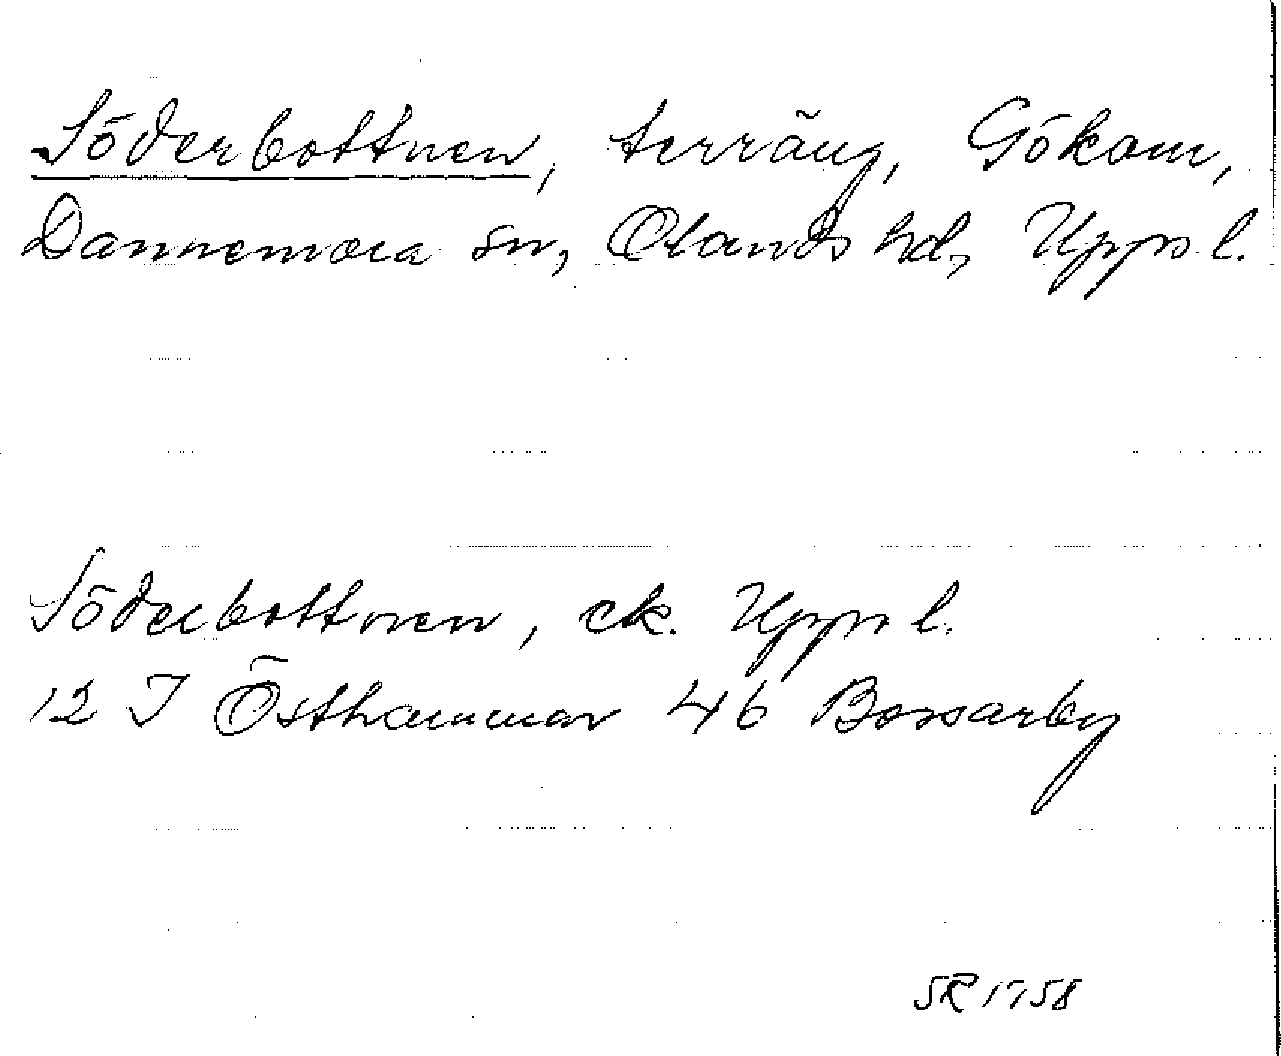 Söderbottnen, terräng, Gökom,
Dannemora sn, Olands hd, Uppl.
Söderbottnen, ek. Uppl.
12 I Östhammar 46 Bossarby
SR 1758